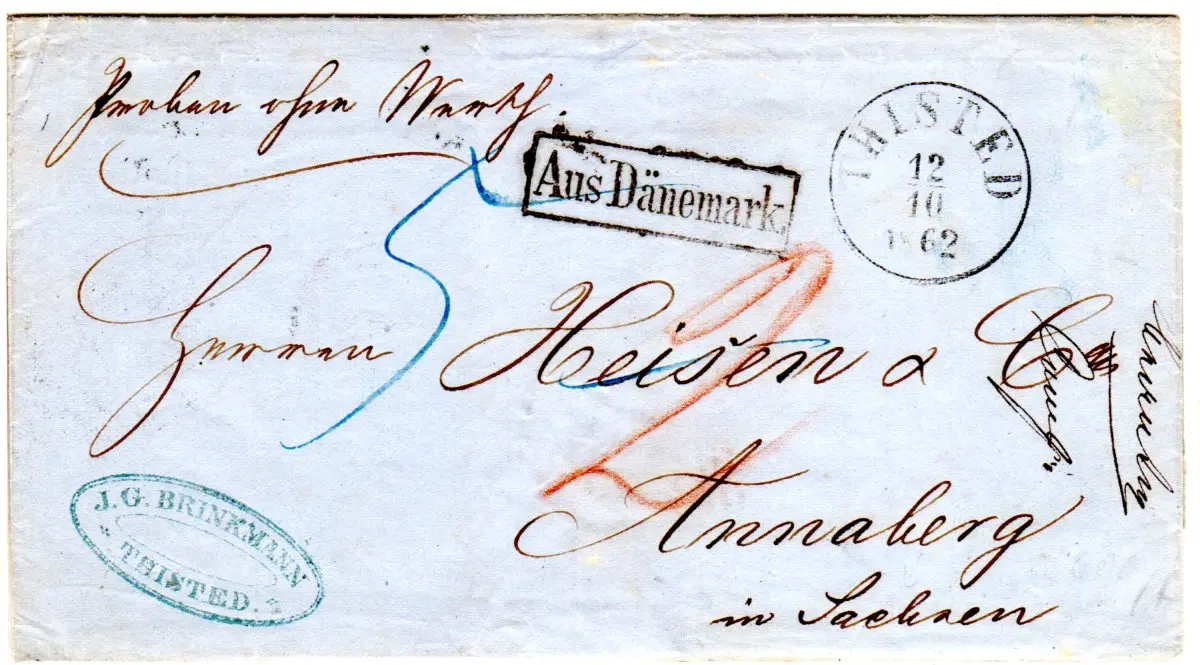 Proben ohne Werth.
Aus Dänemark.
THISTED
12
10
1862
5
2
Herren Heisen & Co
Annaberg
in Sachsen
J. G. BRINKMANN
THISTED.